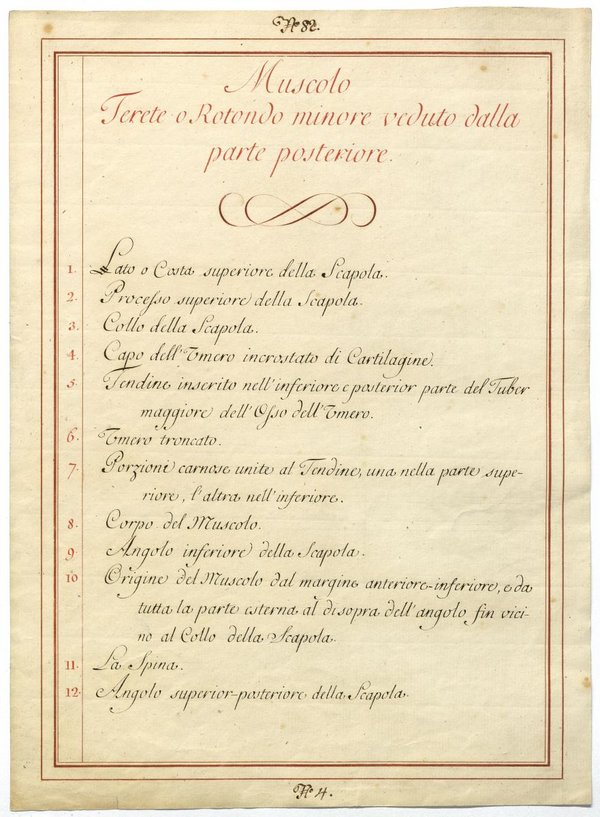 N.º 82.
Muscolo
Terete o Rotondo minore veduto dalla
parte posteriore.
1. Lato o Costa superiore della Scapola.
2. Processo superiore della Scapola.
3. Collo della Scapola.
4. Capo dell'Umero incrostato di Cartilagine.
5. Tendine inserito nell'inferiore e posterior parte del Tuber
maggiore dell'Osso dell'Umero.
6. Umero troncato.
7. Porzioni carnose unite al Tendine, una nella parte supe-
riore, l'altra nell'inferiore.
8. Corpo del Muscolo.
9 Angolo inferiore della Scapola.
10 Origine del Muscolo dal margine anteriore-inferiore, e da
tutta la parte esterna al disopra dell'angolo fin vici-
no al Collo della Scapola.
11. La Spina.
12. Angolo superior-posteriore della Scapola.
N.º 4.